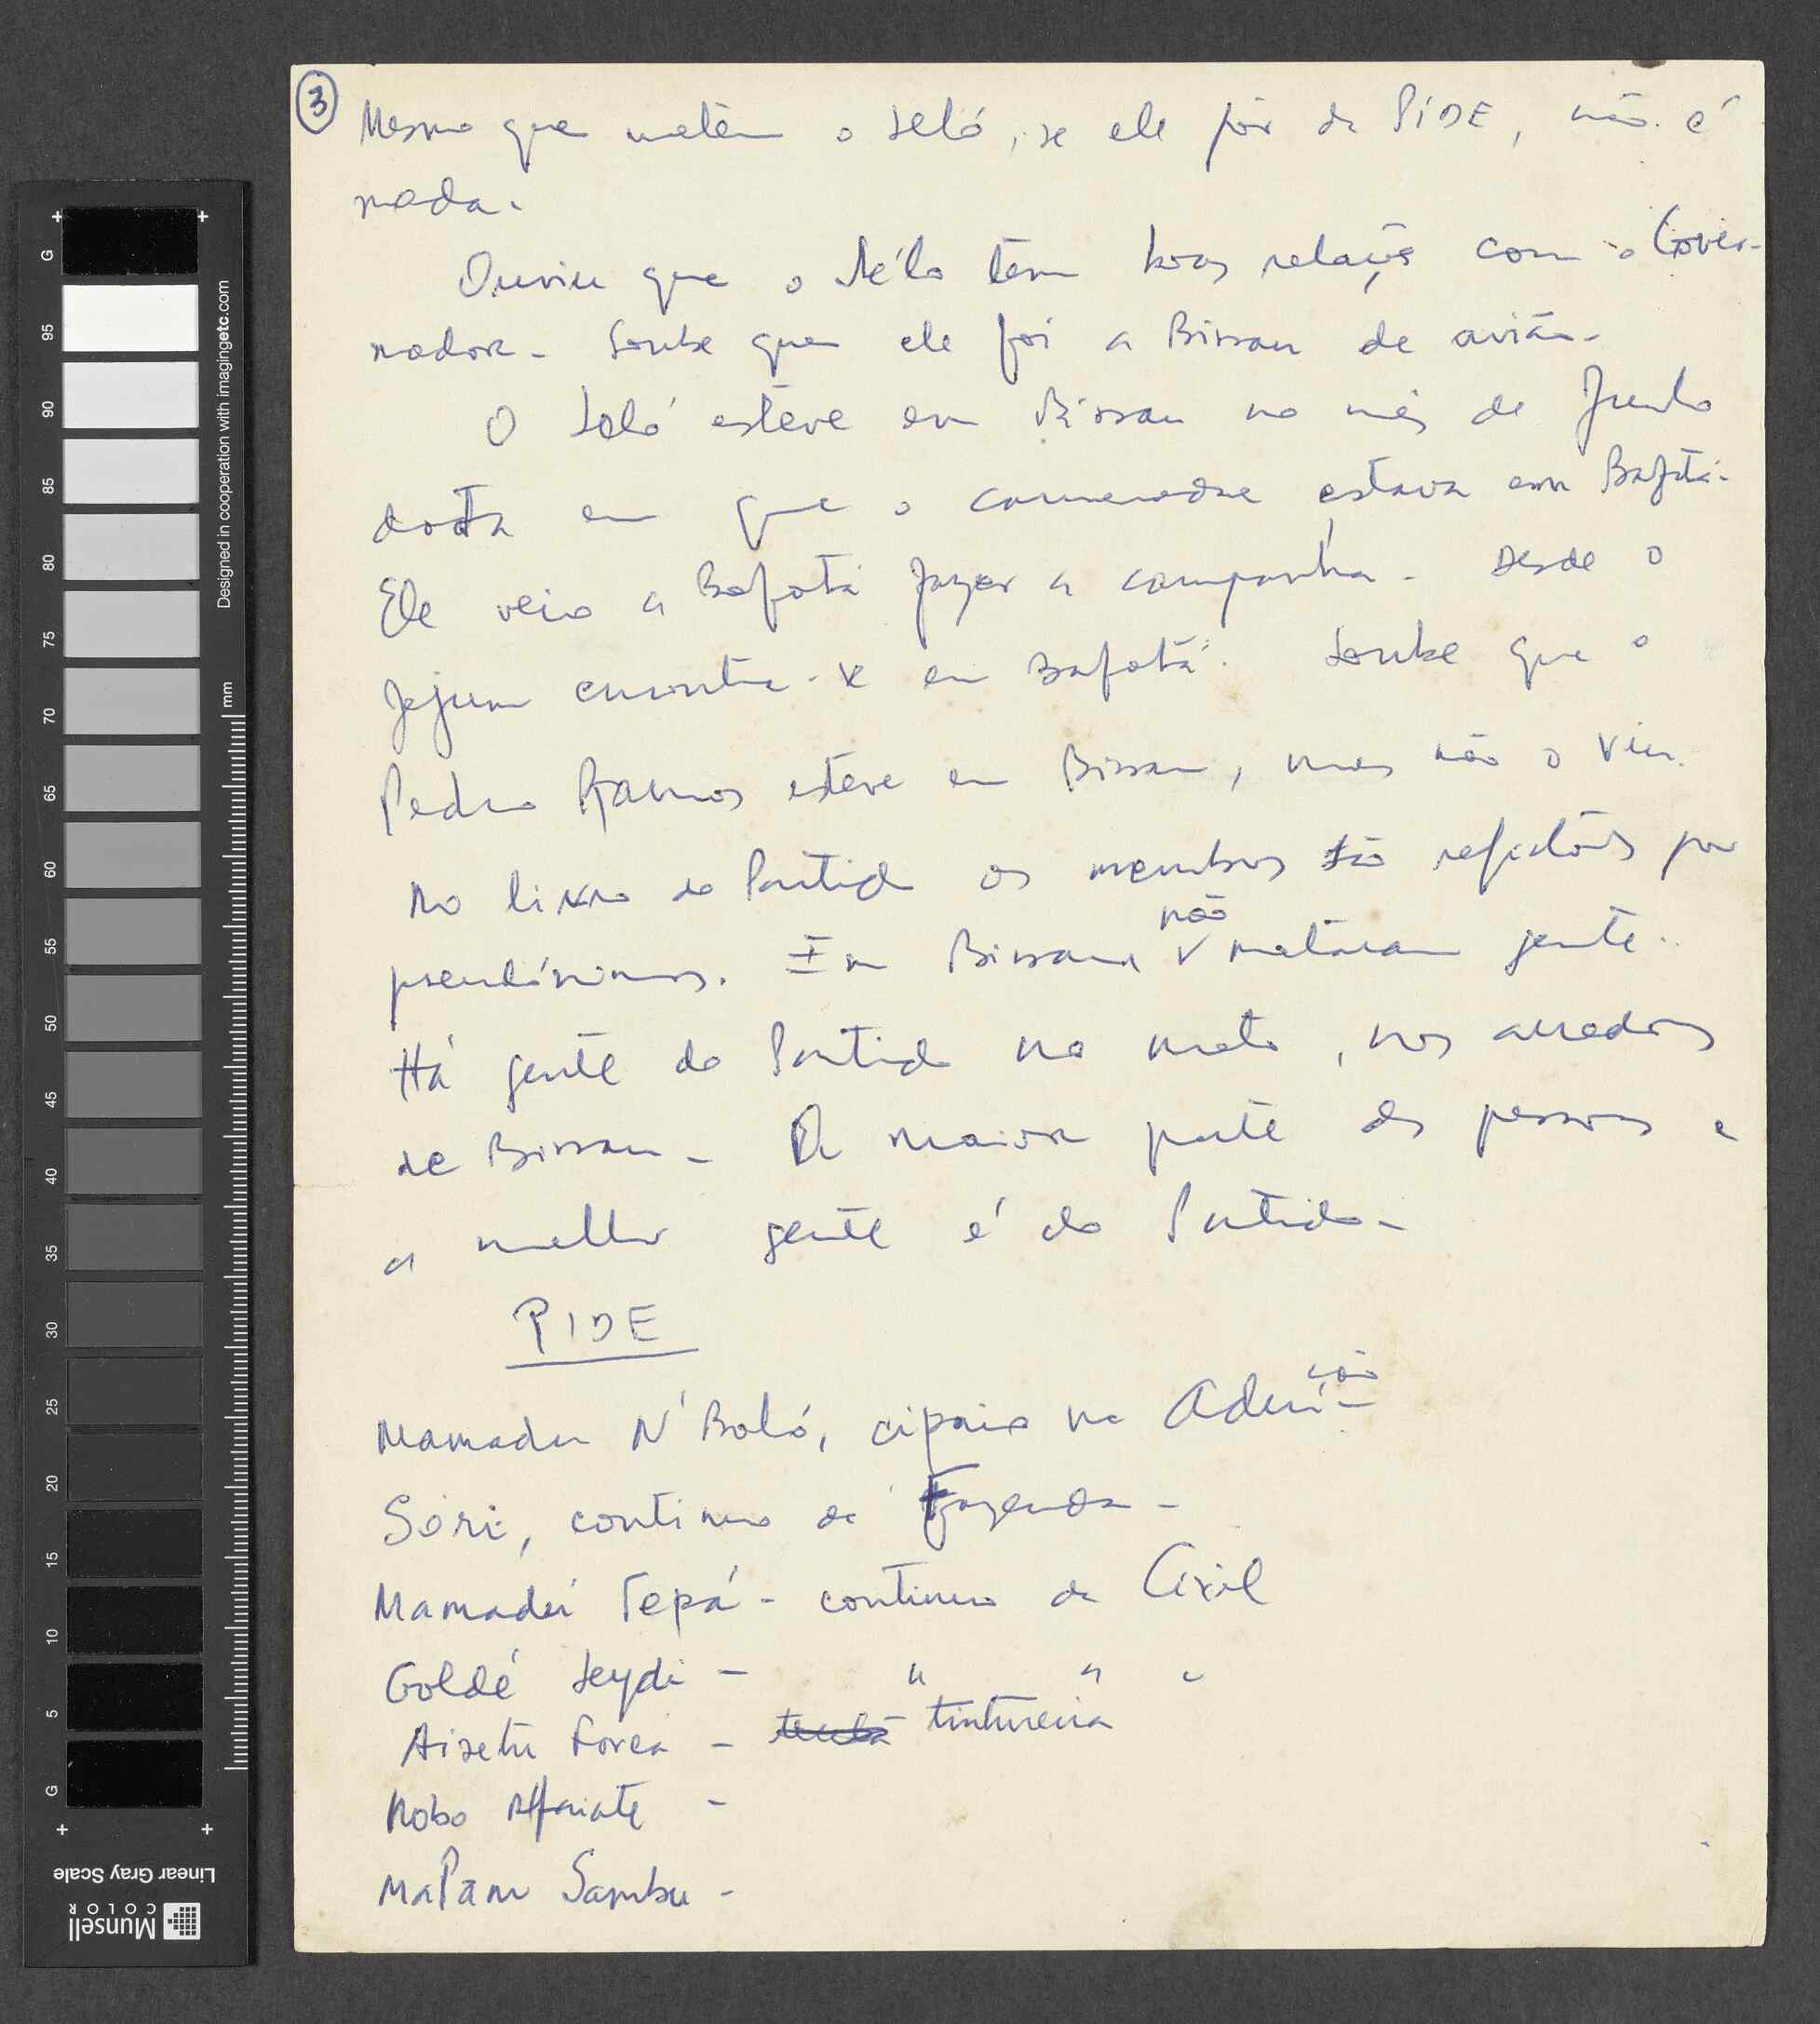 3
Mesmo que matem o Seló, se ele fôr da PIDE, não é
nada.
Ouviu que o Séló tem boas relações com o Gover-
nador. Soube que ele foi a Bissau de avião.
O Seló esteve em Bissau no mês de Junho
data em que o camarada estava em Bafatá.
Ele veio a Bafatá fazer a campanha. Desde o
Jejum encontra-se em Bafatá. Soube que o
Pedro Ramos esteve em Bissau, mas não o viu.
No livro do Partido os membros são por
pseudónimos. Em Bissau não mataram gente.
Há gente do Partido no mato, nos arredores
de Bissau. A maior parte das pessoas e
a melhor gente é do Partido.
PIDE
Mamadu N'Boló, cipaio na Admi-ção
Sori, contínuo da Fazenda -
Mamadú Tepá - contínuo da Civil
Goldé Seydi - " " "
Aisetu Forea - tintureira
Nobo Alfaiate -
Malam Sambu -
G 95 90 85 80 75 70 65 60 55 50 45 40 35 30 25 20 15 10 5 G
mm
Designed in cooperation with imagingetc.com
Linear Gray Scale
Munsell
COLOR